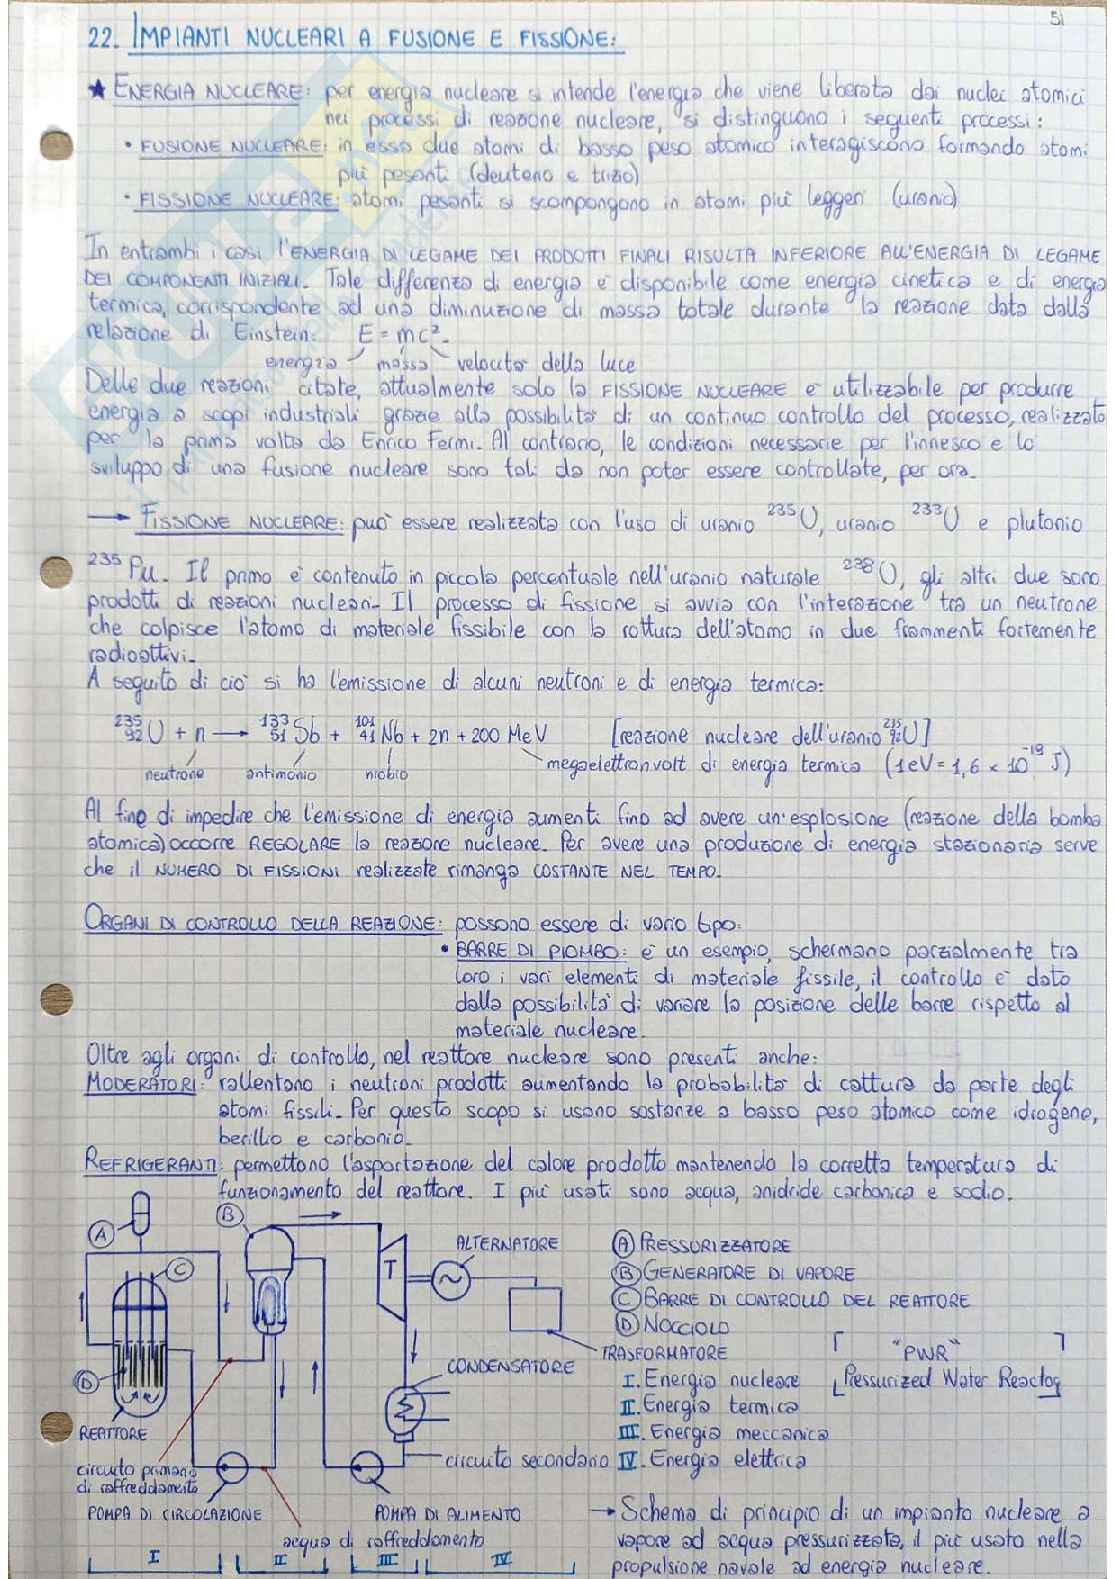 51
22. IMPIANTI NUCLEARI A FUSIONE E FISSIONE:
★ ENERGIA NUCLEARE: per energia nucleare si intende l'energia che viene liberata dai nuclei atomici
nei processi di reazione nucleare, si distinguono i seguenti processi:
• FUSIONE NUCLEARE: in essa due atomi di basso peso atomico interagiscono formando atomi
più pesanti (deuterio e trizio)
• FISSIONE NUCLEARE: atomi pesanti si scompongono in atomi più leggeri (uranio)
In entrambi i casi l'ENERGIA DI LEGAME DEI PRODOTTI FINALI RISULTA INFERIORE ALL'ENERGIA DI LEGAME
DEI COMPONENTI INIZIALI. Tale differenza di energia è disponibile come energia cinetica e di energia
termica, corrispondente ad una diminuzione di massa totale durante la reazione data dalla
relazione di Einstein: E = mc².
energia massa velocità della luce
Delle due reazioni citate, attualmente solo la FISSIONE NUCLEARE è utilizzabile per produrre
energia a scopi industriali grazie alla possibilità di un continuo controllo del processo, realizzato
per la prima volta da Enrico Fermi. Al contrario, le condizioni necessarie per l'innesco e lo
sviluppo di una fusione nucleare sono tali da non poter essere controllate, per ora.
→ FISSIONE NUCLEARE: può essere realizzata con l'uso di uranio ²³⁵U, uranio ²³³U e plutonio
²³⁵Pu. Il primo è contenuto in piccola percentuale nell'uranio naturale ²³⁸U, gli altri due sono
prodotti di reazioni nucleari. Il processo di fissione si avvia con l'interazione tra un neutrone
che colpisce l'atomo di materiale fissibile con la rottura dell'atomo in due frammenti fortemente
radioattivi.
A seguito di ciò si ha l'emissione di alcuni neutroni e di energia termica:
²³⁵₉₂U + n → ¹³³₅₁Sb + ¹⁰¹₄₁Nb + 2n + 200 MeV [reazione nucleare dell'uranio ²³⁵₉₂U]
neutrone antimonio niobio megaelettronvolt di energia termica (1eV = 1,6 × 10⁻¹⁹ J)
Al fine di impedire che l'emissione di energia aumenti fino ad avere un'esplosione (reazione della bomba
atomica) occorre REGOLARE la reazione nucleare. Per avere una produzione di energia stazionaria serve
che il NUMERO DI FISSIONI realizzate rimanga COSTANTE NEL TEMPO.
ORGANI DI CONTROLLO DELLA REAZIONE: possono essere di vario tipo:
• BARRE DI PIOMBO: è un esempio, schermano parzialmente tra
loro i vari elementi di materiale fissile, il controllo è dato
dalla possibilità di variare la posizione delle barre rispetto al
materiale nucleare.
Oltre agli organi di controllo, nel reattore nucleare sono presenti anche:
MODERATORI: rallentano i neutroni prodotti aumentando la probabilità di cattura da parte degli
atomi fissili. Per questo scopo si usano sostanze a basso peso atomico come idrogene,
berillio e carbonio.
REFRIGERANTI: permettono l'asportazione del calore prodotto mantenendo la corretta temperatura di
funzionamento del reattore. I più usati sono acqua, anidride carbonica e sodio.
A
B
C
D
T
ALTERNATORE
TRASFORMATORE
CONDENSATORE
REATTORE
circuito primario
di raffreddamento
circuito secondario
POMPA DI CIRCOLAZIONE
POMPA DI ALIMENTO
acqua di raffreddamento
I II III IV
A PRESSURIZZATORE
B GENERATORE DI VAPORE
C BARRE DI CONTROLLO DEL REATTORE
D NOCCIOLO
"PWR"
Pressurized Water Reactor
I. Energia nucleare
II. Energia termica
III. Energia meccanica
IV. Energia elettrica
→ Schema di principio di un impianto nucleare a
vapore ad acqua pressurizzata, il più usato nella
propulsione navale ad energia nucleare.